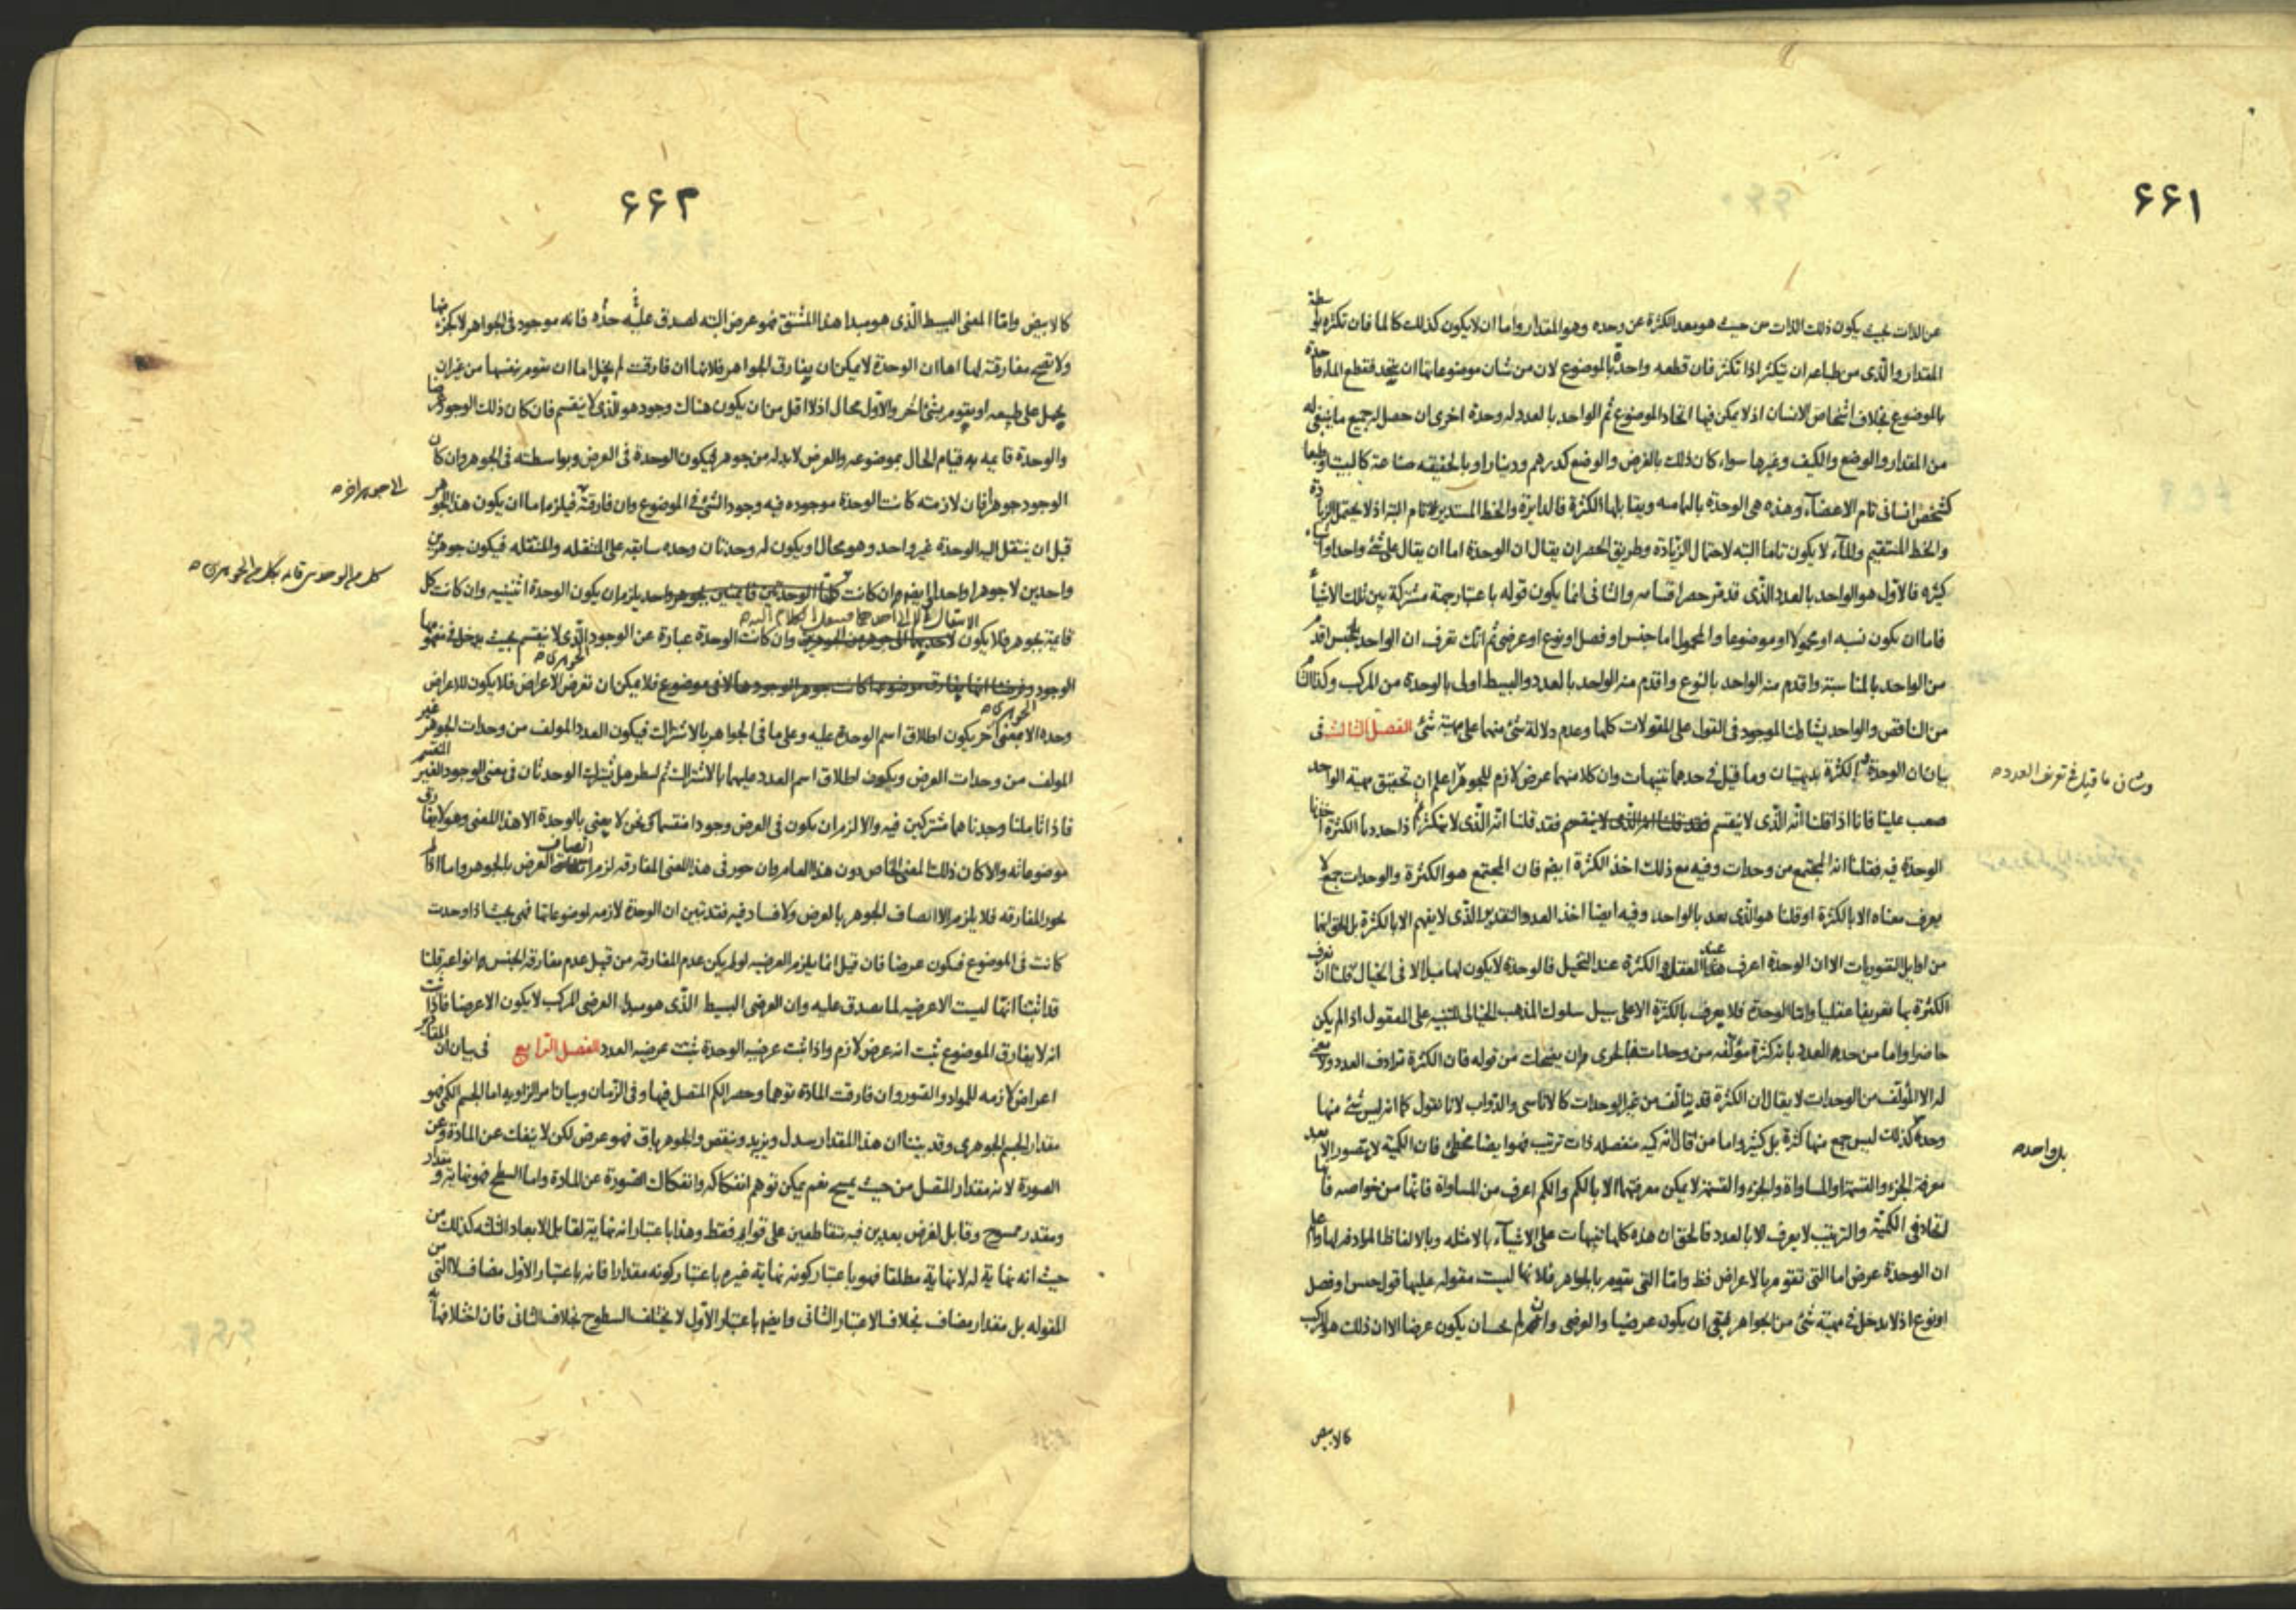 ٦٦١
عن الذات بحيث يكون ذلك الذات من حيث هو معد الكثرة عن وحده وهو المقدار واما ان لا يكون كذلك كالما فان تكثره بواسطة
المقدار والذى من طباعه ان يتكثر اذا تكثر فان قطعه واحدة بالموضوع لان من شان موضوعاتها ان يتحد فقطع الماء واحدة
بالموضوع بخلاف اشخاص الانسان اذ لا يمكن فيها اتحاد الموضوع ثم الواحد بالعدد له وحدة اخرى ان حصل له جميع ما ينبغى له
من المقدار والوضع والكيف وغيرها سواء كان ذلك بالفرض والوضع كدرهم ودينار او بالحقيقه صناعة كالبيت او طبعا
كشخص انسانى تام الاعضآء وهذه هى الوحدة بالتماميه ويقابلها الكثرة فالدايرة والخط المستدير تام البته اذ لا يحتمل الزيادة
والخط المستقيم والمآء لا يكون تاما البته لاحتمال الزيادة وطريق الحصر ان يقال ان الوحدة اما ان يقال على شئ واحد او اشياء
كثيره فالاول هو الواحد بالعدد الذى قد مر حصر اقسامه والثانى انما يكون قوله باعتبار جهة مشتركة بين تلك الاشياء
فاما ان يكون نسبه او محمولا او موضوعا والمحمول اما جنس او فصل او نوع او عرضى ثم انك تعرف ان الواحد بالجنس اقدم
من الواحد بالمناسبة واقدم منه الواحد بالنوع واقدم منه الواحد بالعدد والبسيط اولى بالوحدة من المركب وكذا التام
من الناقص والواحد يشارك الموجود فى القول على المقولات كلها وعدم دلالة شئ منهما على مهية شئ الفصل الثالث فى
بيان ان الوحدة والكثرة بديهيتان وما قيل فى حدهما تنبيهات وان كلا منهما عرض لازم للجوهر اعلم ان تحقيق مهية الواحد
وشانى ما قيل فى تعريف العدد
صعب علينا فانا اذا قلنا انه الذى لا ينقسم فقد قلنا انه الذى لا يتكثر ثم اذا حددنا الكثرة اخذنا
الوحدة فيه فقلنا انه المجتمع من وحدات وفيه مع ذلك اخذ الكثرة ايضم فان المجتمع هو الكثرة والوحدات جمع لا
يعرف معناه الا بالكثرة او قلنا هو الذى يعد بالواحد وفيه ايضا اخذ العدد والتقدير الذى لا يفهم الا بالكثرة بل الحق انها
من اوايل التصوريات الا ان الوحدة اعرف عند العقل والكثرة عند التخيل فالوحدة لا يكون لها مبدا الا فى الخيال فلنا ان نعرف
الكثرة بها تعريفا عقليا واما الوحدة فلا يعرف بالكثرة الا على سبيل سلوك المذهب الخيالى للتنبيه على المعقول اذا لم يكن
حاضرا واما من حد العدد بانه كثرة مؤلفه من وحدات فبالحرى ان يضحك من قوله فان الكثرة ترادف العدد ولا معنى
له الا المؤلف من الوحدات لا يقال ان الكثرة قد يتالف من غير الوحدات كالاناسى والدواب لانا نقول كما انه ليس شئ منها
وحدة كذلك ليس جمع منها كثرة بل كثير واما من قال انه كميه منفصله ذات ترتيب فهو ايضا مخطئ فان الكمية لا يتصور الا بعد
بل واحد
معرفة الجزء والقسمة او المساواة والجزء والقسمة لا يمكن معرفتهما الا بالكم والكم اعرف من المساواة فانها من خواصه فانها
اتحاد فى الكمية والترتيب لا يعرف الا بالعدد فالحق ان هذه كلها تنبيهات على الاشيآء بالامثله وبالالفاظ المرادفه لها واعلم
ان الوحدة عرض اما التى تقوم بالاعراض فظ واما التى يقوم بالجواهر فلانها ليست مقوله عليها قول جنس او فصل
او نوع اذ لا يدخل فى مهية شئ من الجواهر فبقى ان يكون عرضيا والعرضى وان لم يجب ان يكون عرضا الا ان ذلك هو المركب
كالابيض
٦٦٢
كالابيض واما المعنى البسيط الذى هو مبدا هذا المشتق فهو عرض البته لصدق حده عليه فانه موجود فى الجواهر لا كجزء منها
ولا تصح مفارقته لها اما ان الوحدة لا يمكن ان يفارق الجواهر فلانها ان فارقت لم يخل اما ان يقوم بنفسها من غير ان
يحمل على طبيعه او يقوم بشئ اخر والاول محال اذ لا اقل من ان يكون هناك وجود هو الذى لا ينقسم فان كان ذلك الوجود عرضا
والوحدة قايمه به قيام الحال بموضوعه والعرض لا بد له من جوهر فيكون الوحدة فى العرض وبواسطته فى الجوهر وان كان
الوجود جوهرا فان لازمته كانت الوحدة موجوده فيه وجود الشئ فى الموضوع وان فارقته فيلزم اما ان يكون هذا الجوهر
الى جوهر اخر
قبل ان ينتقل اليه الوحدة غير واحد وهو محال او يكون له وحدتان وحده سابقه على المنتقله والمنتقله فيكون جوهرين
واحدين لا جوهرا واحدا ايضم وان كانت كلتا الوحدتين قايمتين بجوهر واحد يلزم ان يكون الوحدة اثنينيه وان كانت كل
كل من الوحدتين قايمه بكل من الجوهرين
قايمة بجوهر فلا يكون الانتقال الا الى احدهما وان كانت الوحدة عبارة عن الوجود الذى لا ينقسم بحيث يدخل فى مفهومها
الوجود الجوهرى لا فى موضوع فلا يمكن ان تعرض الاعراض فلا يكون للاعراض
وحده الا بمعنى اخر يكون اطلاق اسم الوحدة عليه وعلى ما فى الجواهر بالاشتراك فيكون العدد المولف من وحدات الجوهر غير
المولف من وحدات العرض ويكون اطلاق اسم العدد عليهما بالاشتراك ثم لينظر هل يشترك الوحدتان فى معنى الوجود الغير المنقسم
فاذا تاملنا وجدناهما مشتركين فيه والا لزم ان يكون فى العرض وجودا منقسما لكن نحن لا نعنى بالوحدة الا هذا المعنى وهو لا يفارق
موضوعاته والا كان ذلك لمعنى الخاص دون هذا العام وان جوز فى هذا المعنى المفارقه لزم اتصاف العرض بالجوهر واما اذا لم
يجوز المفارقه فلا يلزم الا اتصاف الجوهر بالعرض ولا فساد فيه فقد تبين ان الوحدة لازمه لموضوعاتها فهى بحيث اذا وحدت
كانت فى الموضوع فيكون عرضا فان قيل انما يلزم العرضيه لو لم يكن عدم المفارقه من قبل عدم مفارقه الجنس انواعه قلنا
قد اثبتنا انها ليست الا عرضيه لما يصدق عليه وان العرضى البسيط الذى هو مبدا العرضى المركب لا يكون الا عرضا فاذا ثبت
انه لا يفارق الموضوع ثبت انه عرض لازم واذا ثبت عرضيه الوحدة ثبتت عرضيه العدد الفصل الرابع فى بيان ان المقادير
اعراض لازمه للمواد والصور وان فارقت المادة توهما وحصر الكم المتصل فيها وفى الزمان وبيان امر الزاويه اما الجسم الكمى فهو
مقدار الجسم الجوهرى وقد بينا ان هذا المقدار يتبدل ويزيد وينقص والجوهر باق فهو عرض لكن لا ينفك عن المادة وعن
الصورة لانه مقدار المتصل من حيث يمسح نعم يمكن توهم انفكاكه وانفكاك الصورة عن المادة واما السطح فهو نهايته ومقدار
ومقدر ممسوح وقابل لفرض بعدين فيه متقاطعين على قوايم فقط وهذا باعتبار انه نهاية لقابل الابعاد الثلثه كذلك من
حيث انه نهاية له لا نهاية مطلقا فهو باعتبار كونه نهاية غيره باعتبار كونه مقدارا فانه باعتبار الاول مضاف لا من التى
المقوله بل مقدار مضاف بخلاف الاعتبار الثانى وايضم باعتبار الاول لا يختلف السطوح بخلاف الثانى فان اختلافها به